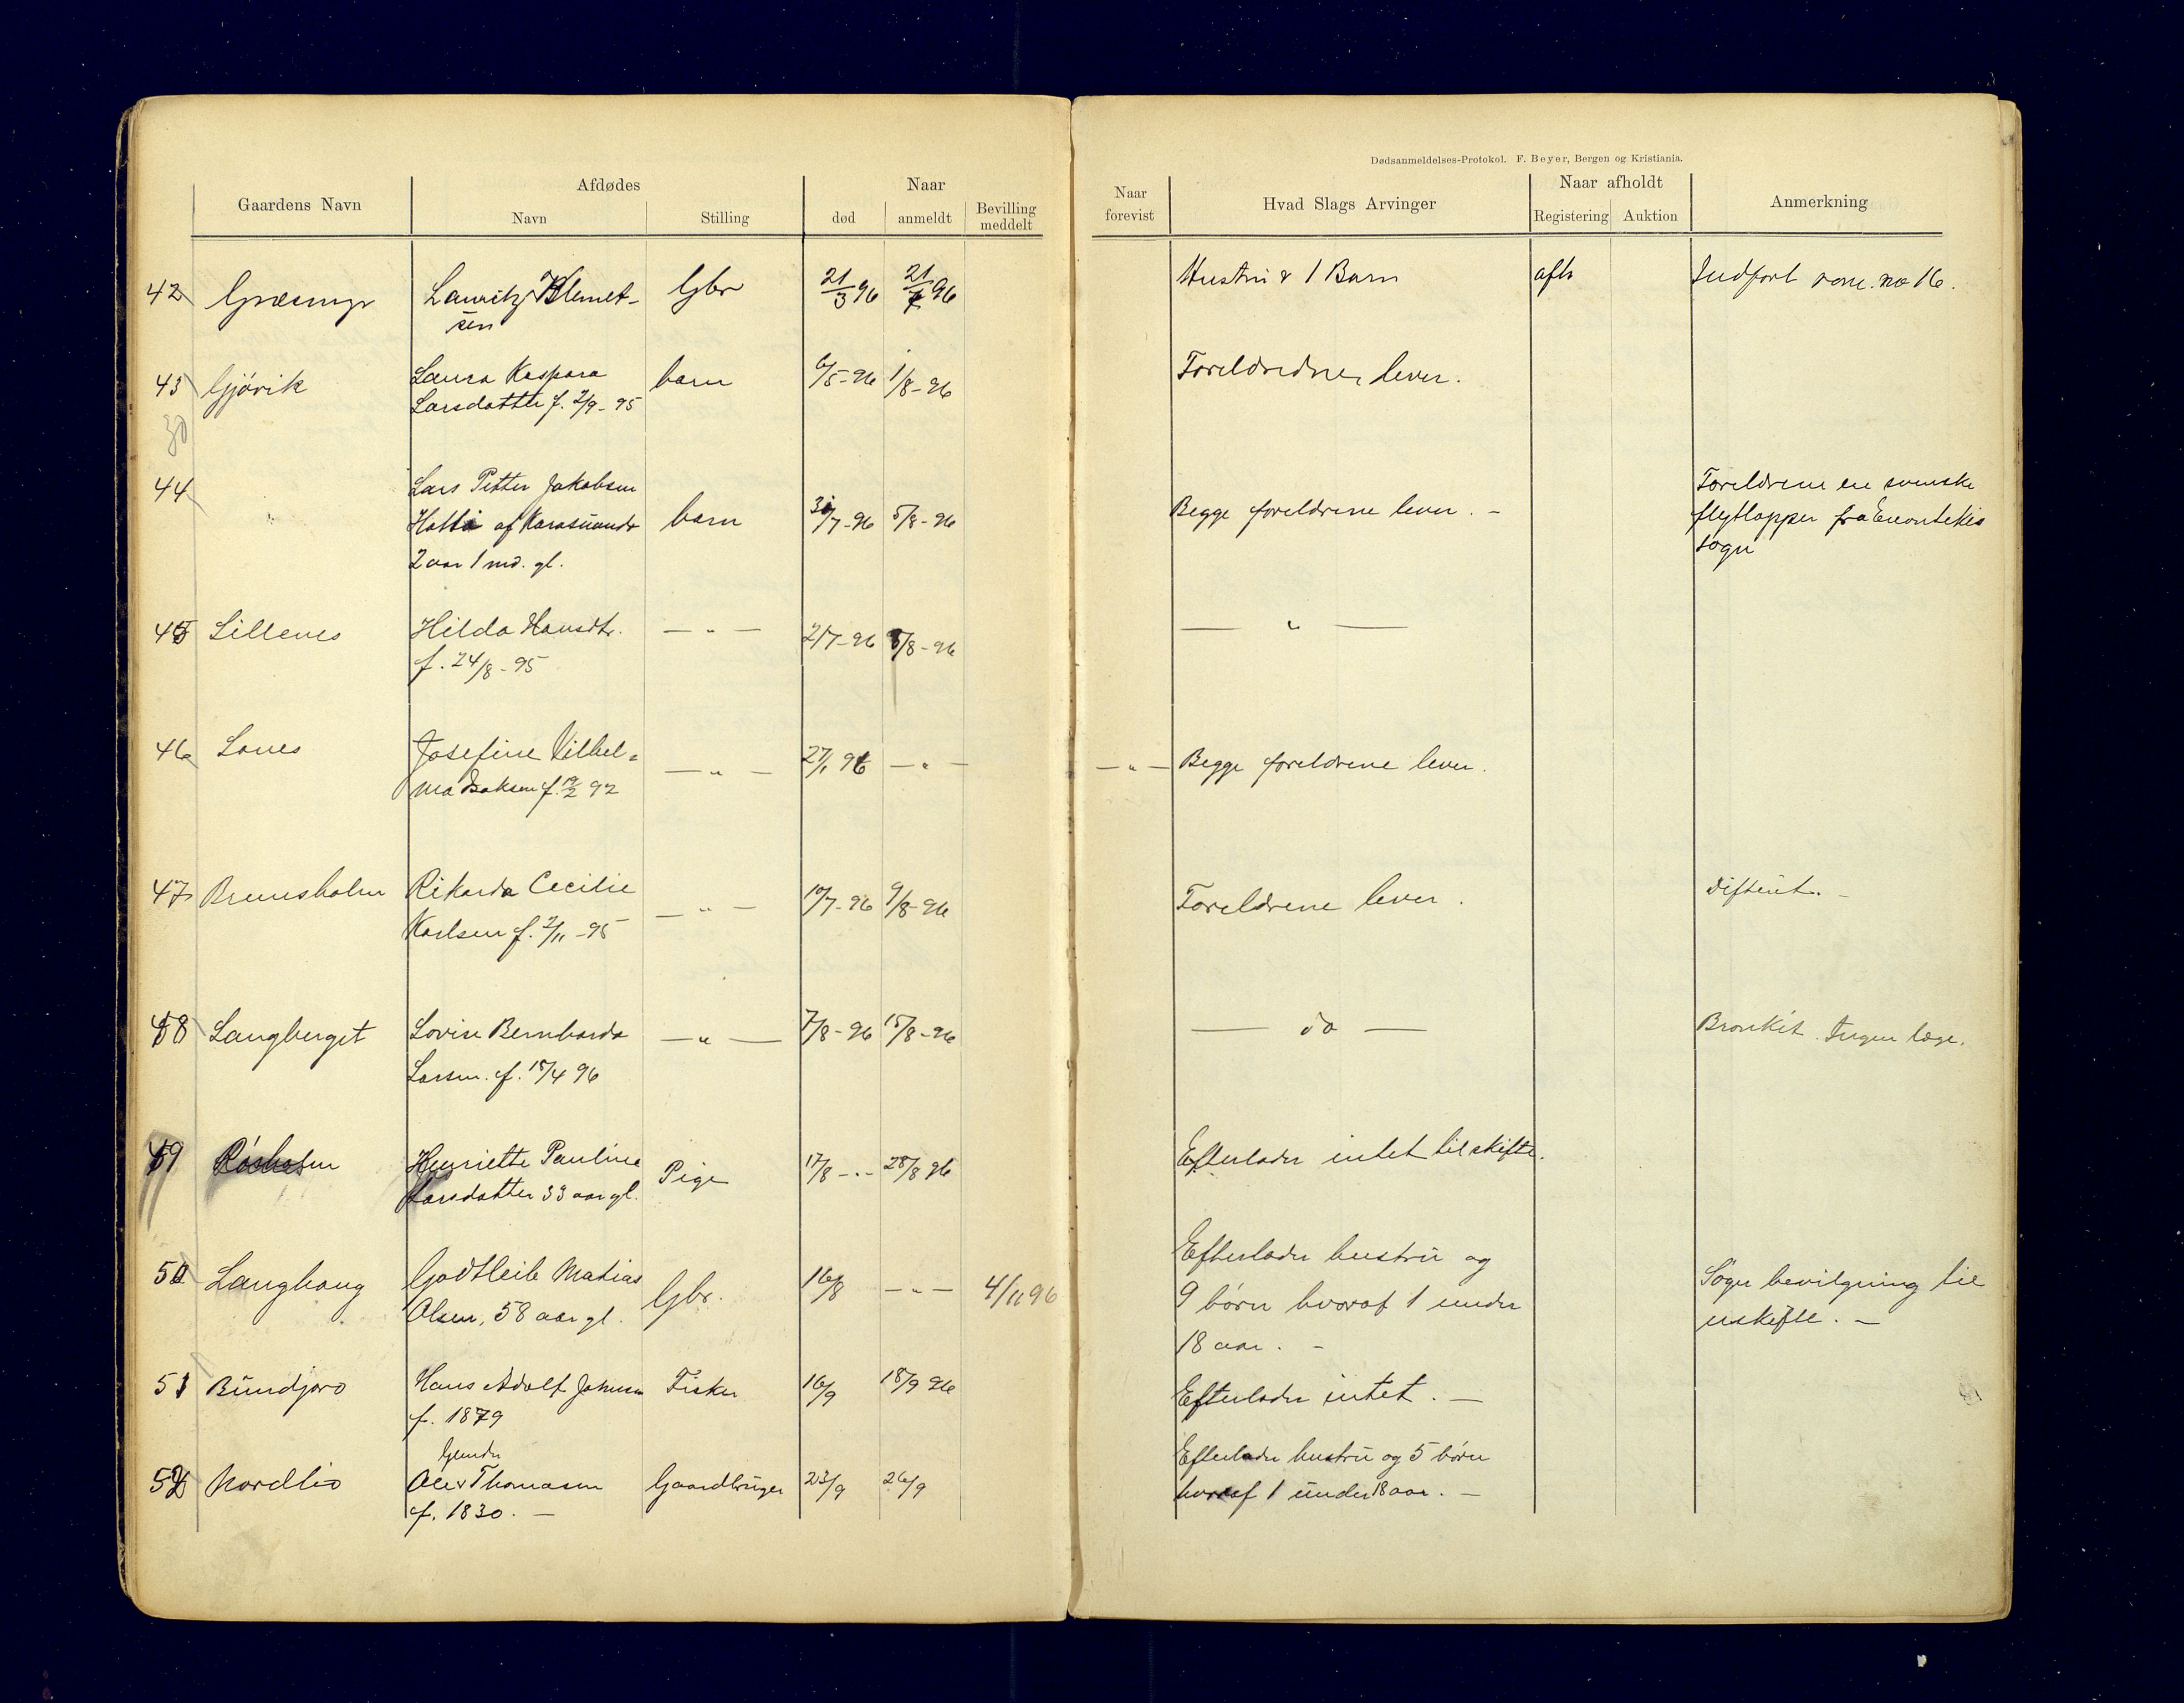 Dødsanmeldelses-Protokol. F. Beyer, Bergen og Kristiania.
Gaardens Navn
Afdødes
Navn
Stilling
Naar
død
anmeldt
Bevilling meddelt
Naar forevist
Hvad Slags Arvinger
Naar afholdt
Registering
Auktion
Anmerkning
42 Græsmyr Lauritz Klemet- Gbr 21/3 96 21/7 96 Hustru & 1 Barn afh Indført no 16.
sen
43 Gjövik Laura Kaspara barn 6/5-96 1/8-96 Foreldrene lever.
Larsdatter f. 2/9-95
30
44 Lars Petter Jakobsen Foreldrene er svenske
Hatti af Karasuando barn 30/7-96 5/8-96 Begge foreldrene lever. - flytlapper fra Enontekis
2 aar 1 md. gl. sogn
45 Lillenes Hilda Hansdtr. — " — 21/7-96 5/8-96 — " —
f. 24/8-95
46 Lanes Josefine Vilhel= — " — 27/1 96 — " — — " — Begge foreldrene lever.
ma Isaksen f. 19/2 92
47 Bremsholm Rikarda Cecilie — " — 10/7-96 9/8-96 Foreldrene lever. Difterit. -
Karlsen f. 2/11-95
48 Langberget Lovise Bernharda — " — 7/8-96 15/8-96 — do — Bronkit. Ingen læge.
Larsen. f. 15/4 96
49 Henriette Pauline Pige 17/8 -"- 28/8 96 Efterlader intet til skifte.
Larsdatter 33 aar gl.
50 Langhaug Godtleib Matias Gbr. 16/8 — " — 4/11 96 Efterlader hustru og Søger bevilgning til
Olsen, 58 aar gl. 9 börn hvoraf 1 under uskifte. -
18 aar. -
51 Bundjord Hans Adolf Johnsen Fisker 16/9 18/9 96 Efterlader intet. —
f. 1879
Gjender Efterlader hustru og 5 börn
52 Nordlid Ole Thomasen Gaardbruger 23/9 26/9 hvoraf 1 under 18 aar. —
f. 1830. —